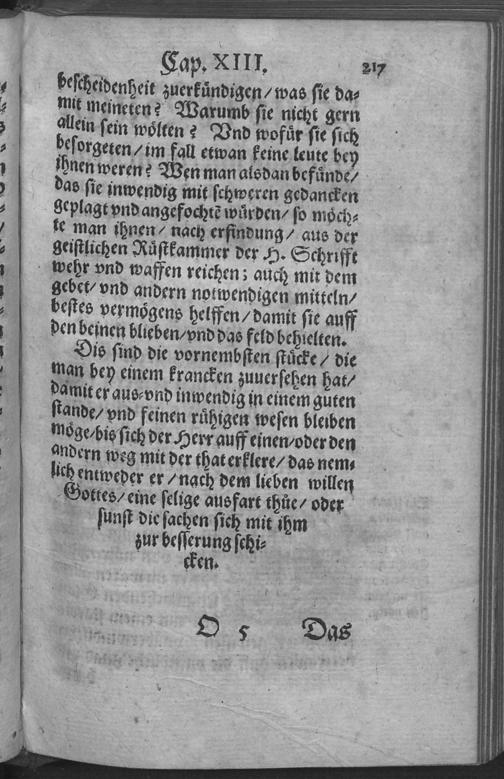 Cap. XIII. 217
bescheidenheit zuerkündigen / was sie da-
mit meineten? Warumb sie nicht gern
allein sein wölten? Vnd wofür sie sich
besorgeten / im fall etwan keine leute bey
ihnen weren? Wen man alsdan befünde /
das sie inwendig mit schweren gedancken
geplagt vnd angefochtē würden / so möch-
te man ihnen / nach erfindung / aus der
geistlichen Rüstkammer der H. Schrifft
wehr vnd waffen reichen; auch mit dem
gebet / vnd andern notwendigen mitteln /
bestes vermögens helffen / damit sie auff
den beinen blieben / vnd das feld behielten.
Dis sind die vornembsten stücke / die
man bey einem krancken zuuersehen hat /
damit er aus- vnd inwendig in einem guten
stande / vnd feinen rühigen wesen bleiben
möge / bis sich der Herr auff einen / oder den
andern weg mit der that erklere / das nem-
lich entweder er / nach dem lieben willen
Gottes / eine selige ausfart thüe / oder
sunst die sachen sich mit ihm
zur besserung schi-
cken.
O 5 Das